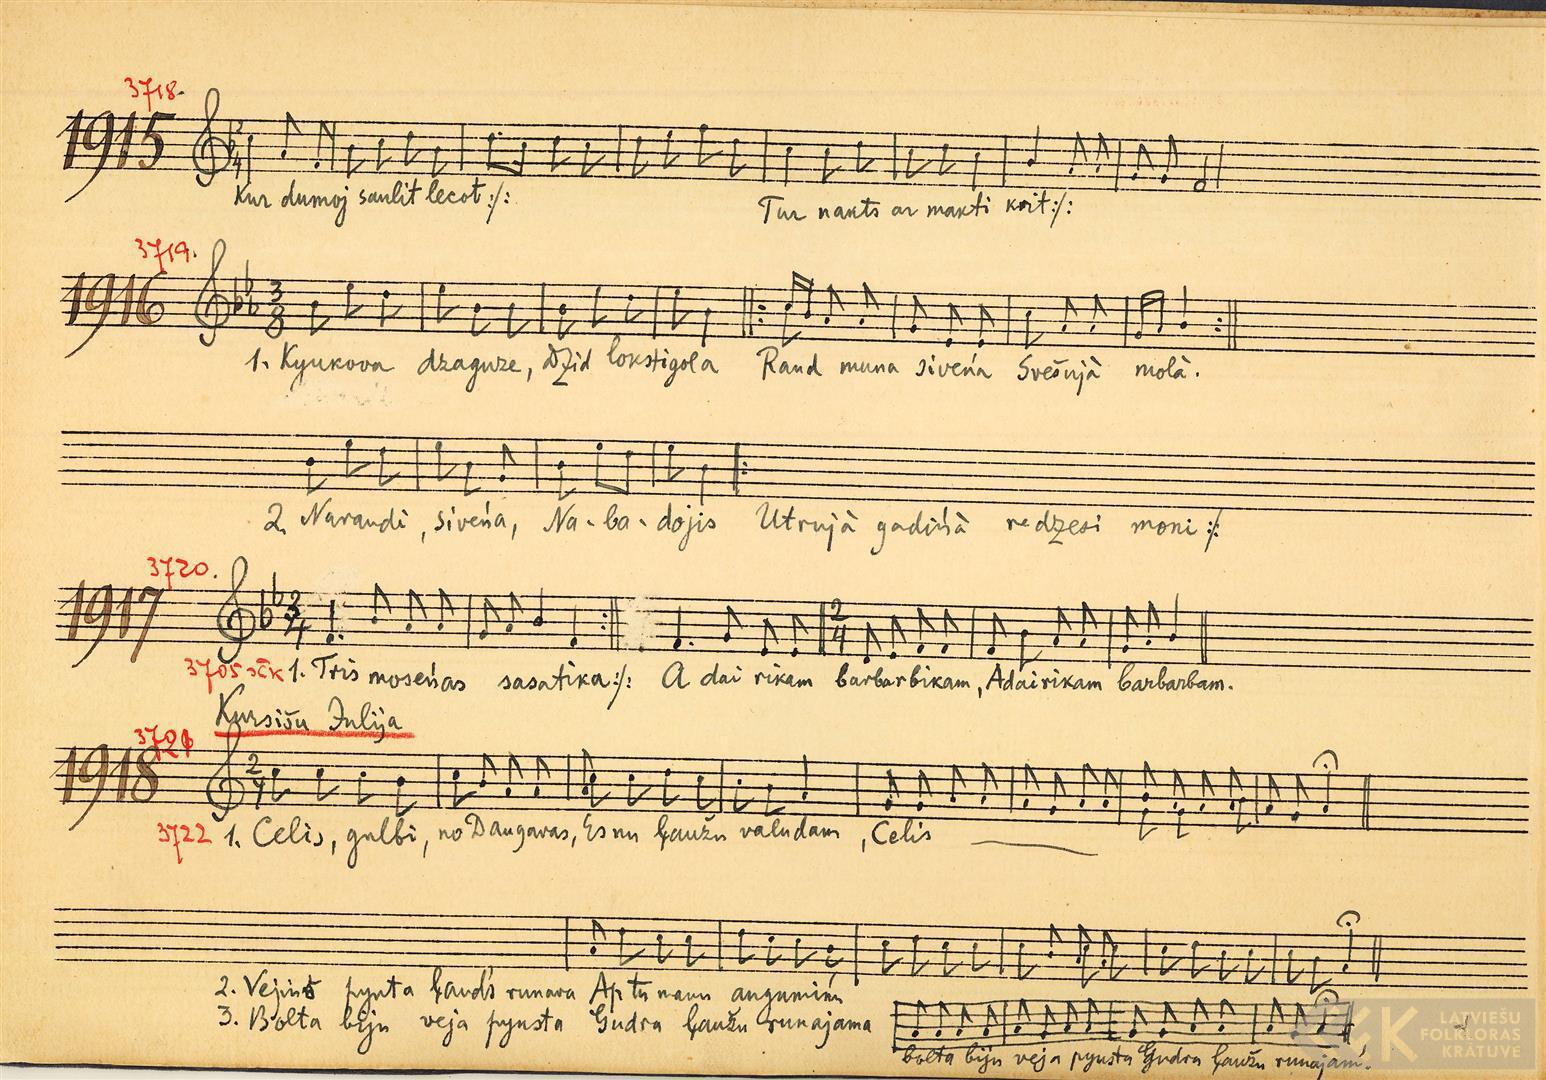 3718.
1915
Kur dumoj saulit lecot :/: Tur nakts ar makti krit :/:
3719.
1916
3 8
1. Kyukova dzaguze, Dzid lokstigola Raud muna sivéńa Svešujà molà.
2. Naraudi, sivéńa, Na-ba-dojis Utrujà gadińà redzesi moni :/:
3720.
1917
3 4 2 4
3705 1. Tris moséńas sasatika :/: A dai rikam barbarbikam, Adairikam barbarbam.
Kursišu Julija
3721
1918
2 4
3722 1. Celis, gulbi, no Daugavas, Es nu ļaužu valudam, Celis
2. Vejint pynta ļauds runava Ap tu nanu angumińu
3. Bolta biju veja pynsta Gudra ļaužu runajama
bolta biju veja pynsta Gudra ļaužu runajam.
LATVIEŠU
FOLKLORAS
KRĀTUVE